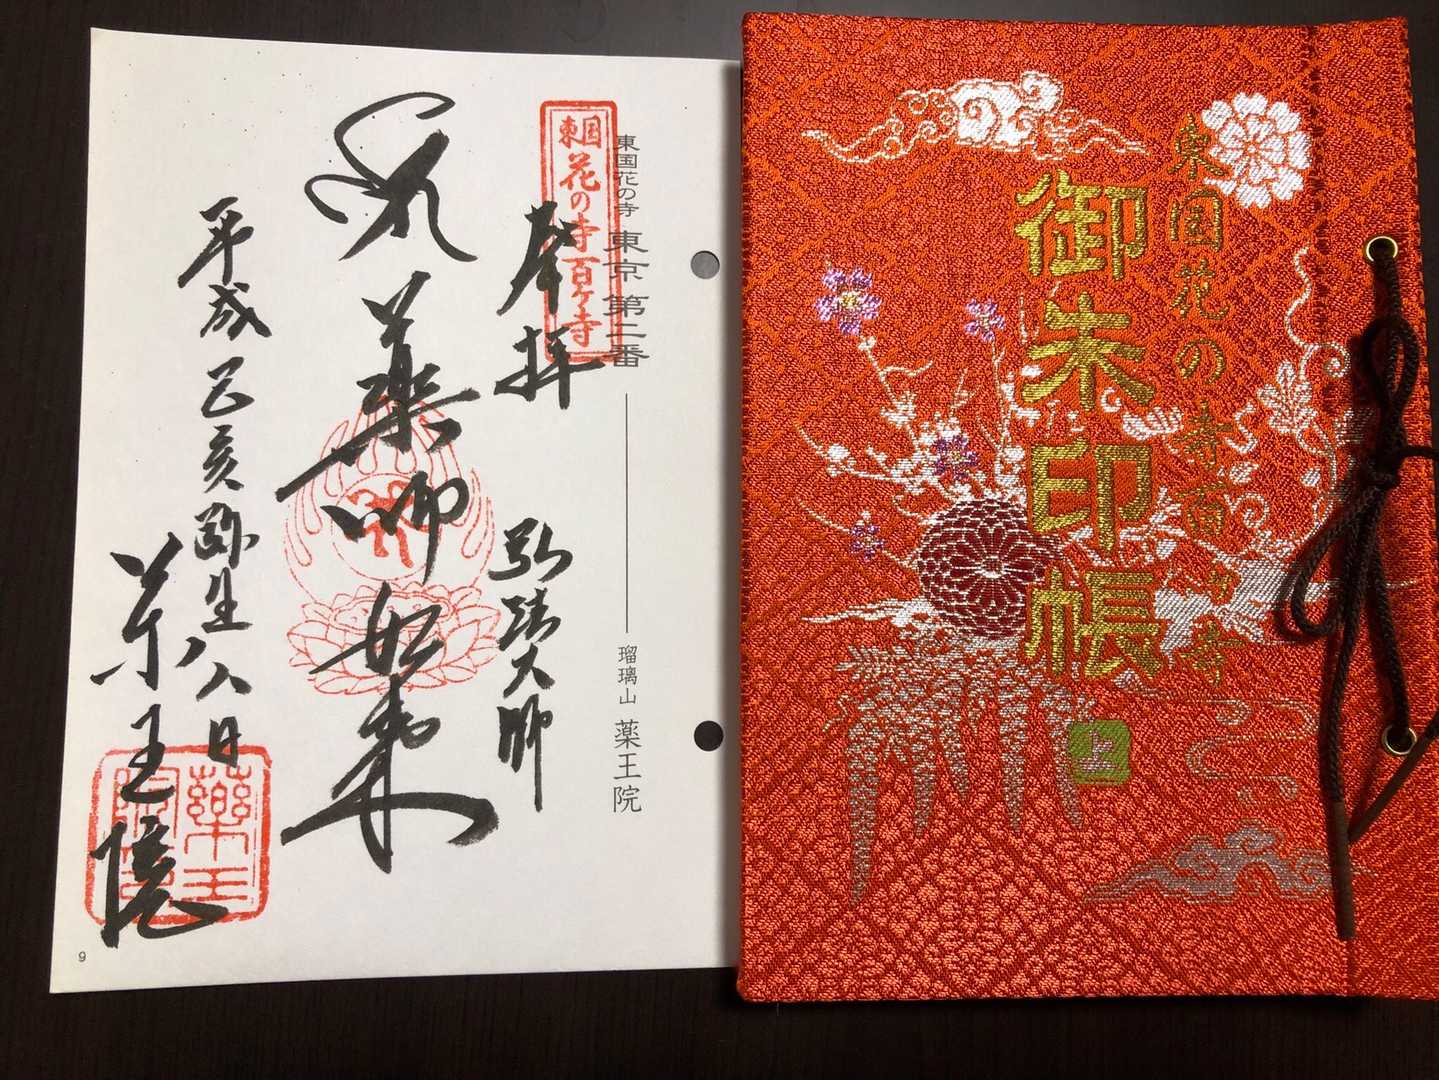 東国花の寺百ヶ寺
東国花の寺 東京 第二番
瑠璃山 薬王院
奉拝
弘法大師
薬師如来
平成己亥弥生八日
薬王院
薬王
9
東国花の寺百ヶ寺
御朱印帳
上